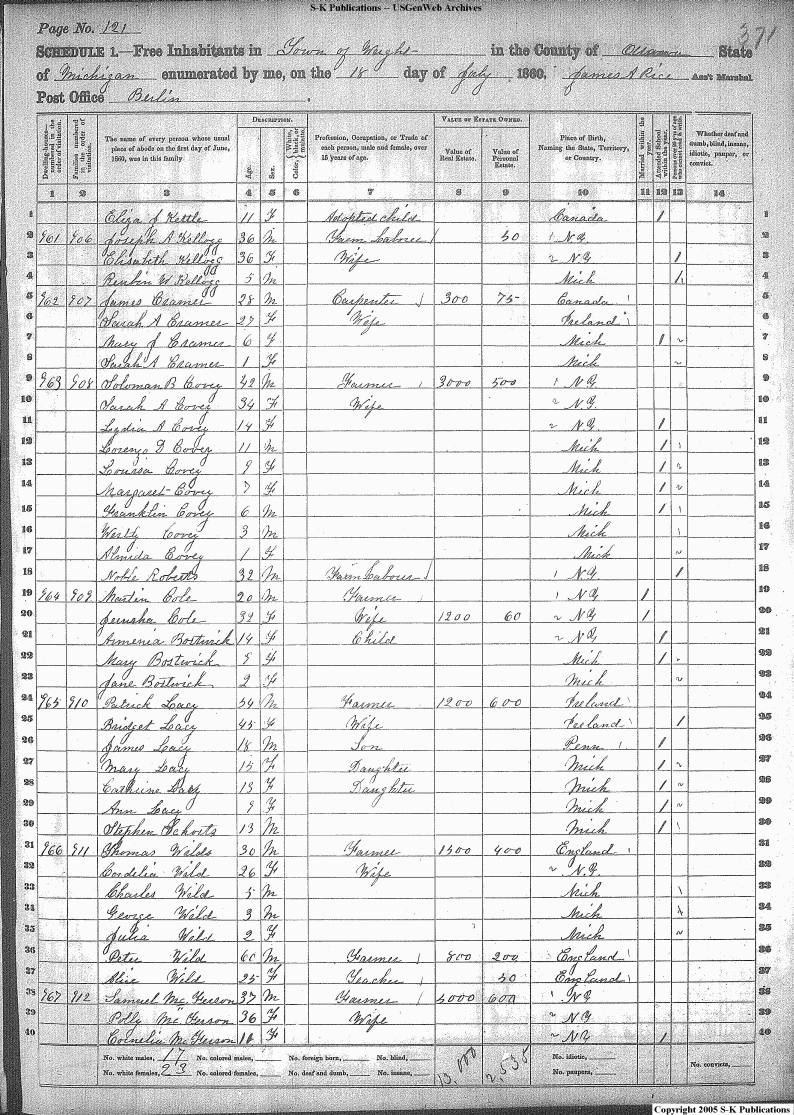 S-K Publications -- USGenWeb Archives
Page No. 121
371
SCHEDULE 1.—Free Inhabitants in Town of Wright in the County of Ottawa State
of Michigan enumerated by me, on the 18 day of July 1860. James A Rice Ass't Marshal
Post Office Berlin
DESCRIPTION. VALUE OF ESTATE OWNED.
Dwelling-houses—numbered in the order of visitation.
Families numbered in the order of visitation.
The name of every person whose usual place of abode on the first day of June, 1860, was in this family
Age.
Sex.
Color, White, black, or mulatto.
Profession, Occupation, or Trade of each person, male and female, over 15 years of age.
Value of Real Estate.
Value of Personal Estate.
Place of Birth, Naming the State, Territory, or Country.
Married within the year.
Attended School within the year.
Persons over 20 y'rs of age who cannot read & write.
Whether deaf and dumb, blind, insane, idiotic, pauper, or convict.
1 2 3 4 5 6 7 8 9 10 11 12 13 14
1 Eliza J Kettle 11 F Adopted child Canada / 1
2 961 906 Joseph A Kellogg 36 M Farm Labourer 50 N.Y. 2
3 Elisabeth Kellogg 36 F Wife N.Y. / 3
4 Reubin W Kellogg 5 M Mich 4
5 962 907 James Cramer 28 M Carpenter 300 75 Canada 5
6 Sarah A Cramer 27 F Wife Ireland 6
7 Mary J Cramer 6 F Mich / 7
8 Sarah A Cramer 1 F Mich 8
9 963 908 Soloman B Covey 42 M Farmer 3000 500 N.Y. 9
10 Sarah A Covey 34 F Wife N.Y. 10
11 Lydia A Covey 14 F N.Y. / 11
12 Lorenzo D Covey 11 M Mich / 12
13 Louisa Covey 9 F Mich / 13
14 Margaret Covey 7 F Mich / 14
15 Franklin Covey 6 M Mich / 15
16 Westly Covey 3 M Mich 16
17 Almida Covey 1 F Mich 17
18 Noble Roberts 32 M Farm Labourer N.Y. / 18
19 964 909 Martin Cole 20 M Farmer N.Y. / 19
20 Jerusha Cole 32 F Wife 1200 60 N.Y. / 20
21 Armenia Bostwick 14 F Child N.Y. / 21
22 Mary Bostwick 9 F Mich / 22
23 Jane Bostwick 2 F Mich 23
24 965 910 Patrick Lacy 54 M Farmer 1200 600 Ireland 24
25 Bridget Lacy 45 F Wife Ireland / 25
26 James Lacy 18 M Son Penn / 26
27 Mary Lacy 15 F Daughter Mich / 27
28 Cathrine Lacy 13 F Daughter Mich / 28
29 Ann Lacy 9 F Mich / 29
30 Stephen 13 M Mich / 30
31 966 911 Thomas Wilds 30 M Farmer 1500 400 England 31
32 Cordelia Wild 26 F Wife N.Y. 32
33 Charles Wild 5 M Mich 33
34 George Wild 3 M Mich 34
35 Julia Wild 2 F Mich 35
36 Peter Wild 60 M Farmer 800 200 England 36
37 Alice Wild 25 F Teacher 50 England 37
38 967 912 Samuel McFerson 37 M Farmer 600 N.Y. 38
39 Polly McFerson 36 F Wife N.Y. 39
40 Cornelia McFerson F N.Y. / 40
No. white males, 17 No. colored males, No. foreign born, No. blind, 13,000 2,535 No. idiotic,
No. white females, 23 No. colored females, No. deaf and dumb, No. insane, No. paupers, No. convicts,
Copyright 2005 S-K Publications